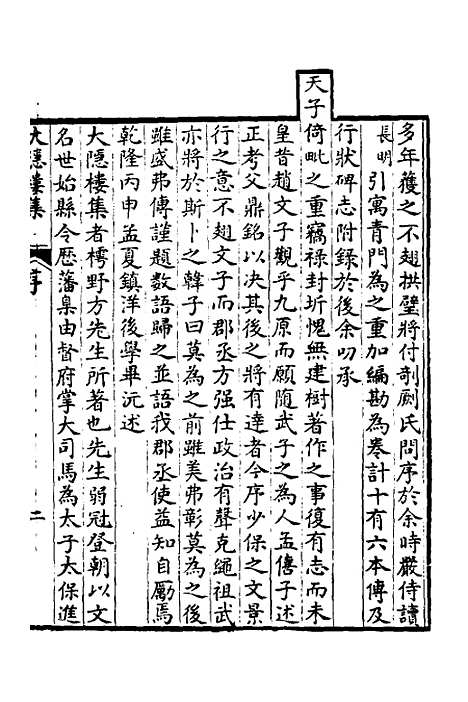 多年獲之不翅拱璧將付剞劂氏問序於余時嚴侍讀
長明引寓青門為之重加編勘為卷計十有六本傳及
行狀碑志附錄於後余叨承
天子倚毗之重竊祿封圻愧無建樹著作之事復有志而未
皇昔趙文子觀乎九原而願隨武子之為人孟僖子述
正考父鼎銘以決其後之將有達者今序少保之文景
行之意不翅文子而郡丞方强仕政治有聲克繩祖武
亦將於斯卜之韓子曰莫為之前雖美弗彰莫為之後
雖盛弗傳謹題數語歸之並語我郡丞使益知自勵焉
乾隆丙申孟夏鎮洋後學畢沅述
大隱樓集者樗野方先生所著也先生弱冠登朝以文
名世始縣令歷藩臬由督府掌大司馬為太子太保進
大隱樓集
序
二